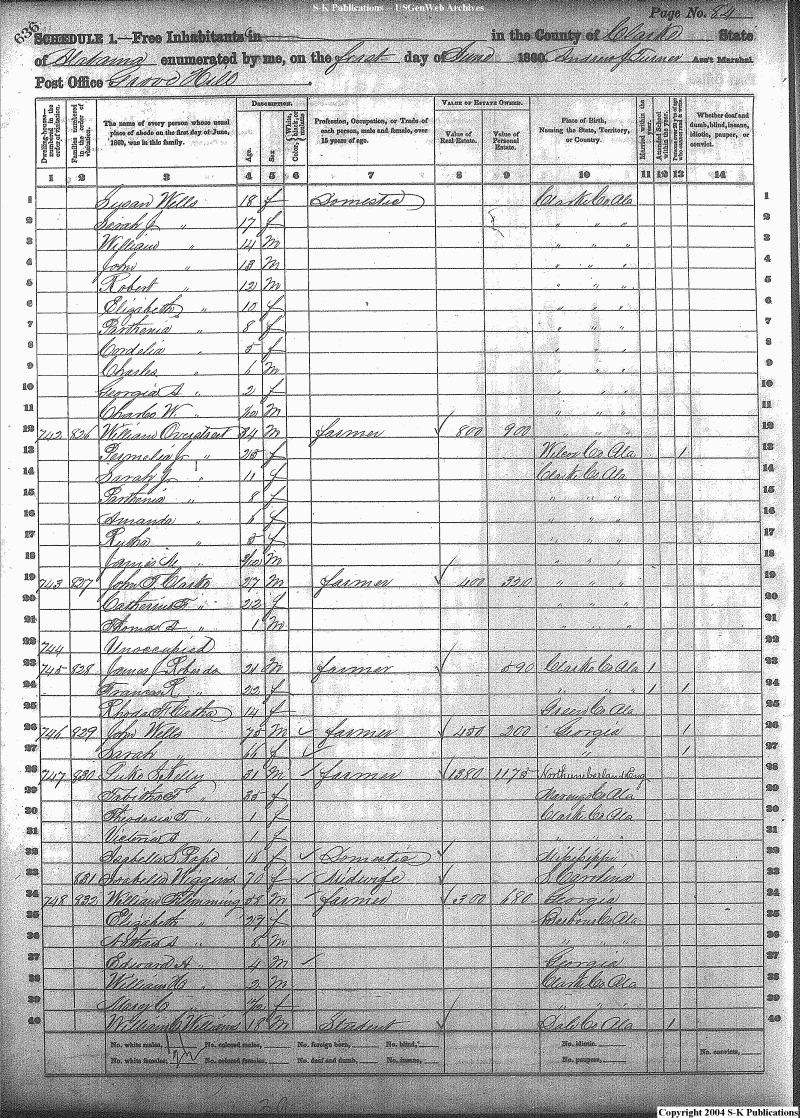 S-K Publications -- USGenWeb Archives
Page No. 84
636
SCHEDULE 1.—Free Inhabitants in in the County of Clarke State
of Alabama enumerated by me, on the first day of June 1860. Andrew J. Turner Ass't Marshal.
Post Office Grove Hill
Dwelling-houses—numbered in the order of visitation.
Families numbered in the order of visitation.
The name of every person whose usual place of abode on the first day of June, 1860, was in this family.
DESCRIPTION.
Age.
Sex
Color, {White, black, or mulatto
Profession, Occupation, or Trade of each person, male and female, over 15 years of age.
VALUE OF ESTATE OWNED.
Value of Real Estate.
Value of Personal Estate.
Place of Birth, Naming the State, Territory, or Country.
Married within the year.
Attended School within the year.
Persons over 20 y'rs of age who cannot read & write.
Whether deaf and dumb, blind, insane, idiotic, pauper, or convict.
1 2 3 4 5 6 7 8 9 10 11 12 13 14
1 Susan Wells 18 f Domestic Clarke Co Ala 1
2 Sarah J " 17 f " " " 2
3 William " 14 m " " " 3
4 John " 13 m " " " 4
5 Robert " 12 m " " " 5
6 Elizabeth " 10 f " " " 6
7 Parthenia " 8 f " " " 7
8 Cordelia " 5 f " " " 8
9 Charles " 6 m " " " 9
10 Georgia A " 2 f " " " 10
11 Charles W. " m " " " 11
12 742 826 William Overstreet 34 m farmer 800 900 " " " 12
13 Permelia J " 25 f Wilcox Co Ala 1 13
14 Sarah J " 11 f Clarke Co Ala 14
15 Parthenia " 8 f " " " 15
16 Amanda " 6 f " " " 16
17 Rutha " 5 f " " " 17
18 James M " m " " " 18
19 743 827 John F Clarke 27 m farmer 400 320 " " " 19
20 Catherine F " 22 f " " " 20
21 Thomas A " 1 m " " " 21
22 744 Unoccupied 22
23 745 828 James J Roberds 21 m farmer 590 Clarke Co Ala 1 23
24 Frances R " 22 f " " " 1 1 24
25 Rhoda 14 f Green Co Ala 25
26 746 829 John Wells 75 m farmer 450 200 Georgia 1 26
27 Sarah " 66 f " 1 27
28 747 830 Kelley 31 m farmer 1380 1175 Northumberland Eng 28
29 Tabitha F " 35 f Marengo Co Ala 29
30 Theodosia F. " 1 f Clarke Co Ala 30
31 Victoria " 1 f " " " 31
32 Isabella S Pope 16 f Domestic Mississippi 32
33 831 Isabella Wiggins 70 f Midwife S Carolina 33
34 748 832 William Flemming 38 m farmer 300 680 Georgia 34
35 Elizabeth " 27 f Barbour Co Ala 35
36 " 8 m " " 36
37 Edward A " 4 m Georgia 37
38 William H " 2 m Clarke Co Ala 38
39 Mary C " f " " " 39
40 William Williams 18 m Student Dale Co Ala 1 40
No. white males, No. colored males, No. foreign born, No. blind, No. idiotic, No. convicts,
No. white females, No. colored females, No. deaf and dumb, No. insane, No. paupers,
Copyright 2004 S-K Publications